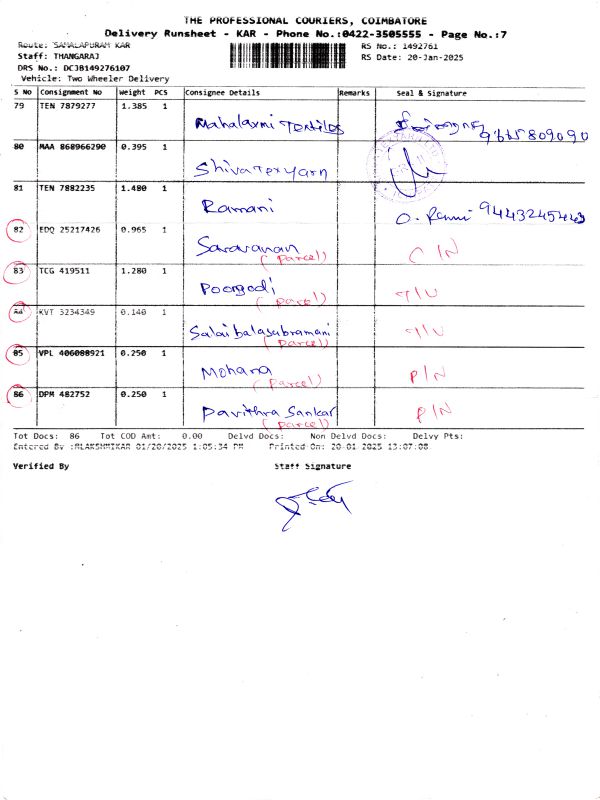 THE PROFESSIONAL COURIERS, COIMBATORE
Delivery Runsheet - KAR - Phone No.:0422-3505555 - Page No.:7
Route: SAMALAPURAM KAR
RS No.: 1492761
Staff: THANGARAJ
RS Date: 20-Jan-2025
DRS No.: DC3B149276107
Vehicle: Two Wheeler Delivery
S No Consignment No Weight PCS Consignee Details Remarks Seal & Signature
79 TEN 7879277 1.385 1 Mahalaxmi Textiles 9865809090
80 MAA 868966290 0.395 1 Shivatexyarn
81 TEN 7882235 1.480 1 Ramani O. Rammi 9443245463
82 EDQ 25217426 0.965 1 Saravanan (Parcel) C/N
83 TCG 419511 1.280 1 Poongodi (Parcel)
84 KVT 3234349 0.140 1 Salaibalasubramani (Parcel)
85 VPL 406088921 0.250 1 Mohana (Parcel) P/N
86 DPM 482752 0.250 1 Pavithra Sankar (Parcel) P/N
Tot Docs: 86 Tot COD Amt: 0.00 Delvd Docs: Non Delvd Docs: Delvy Pts:
Entered By :ALAKSHMIKAR 01/20/2025 1:05:34 PM Printed On: 20-01-2025 13:07:08
Verified By Staff Signature